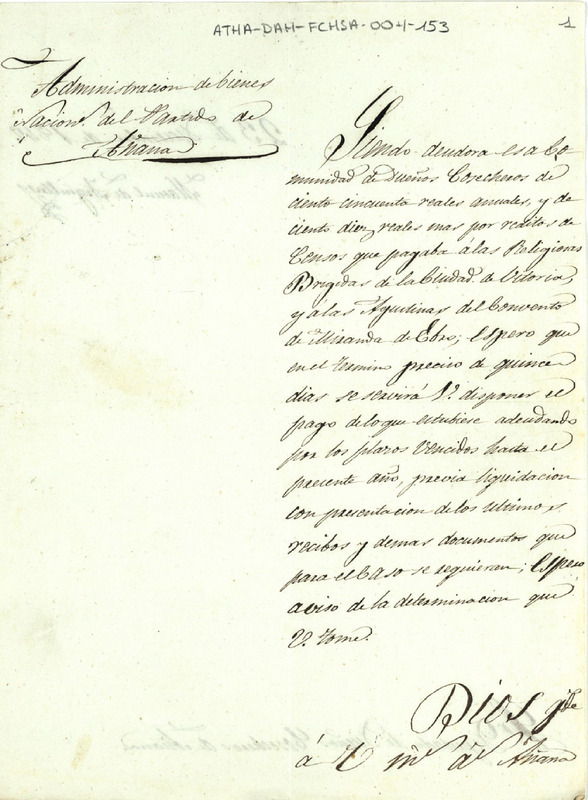 ATHA-DAH-FCHSA-004-153
1
Administracion de bienes
Nacion.s del Partido de
Añana
Siendo deudora esa Co-
munidad de Dueños Cosecheros de
ciento cincuenta reales anuales, y de
ciento diez reales mas por reditos de
Censos que pagaba á las Religiosas
Brigidas de la Ciudad de Vitoria,
y á las Agustinas del Convento
de Miranda de Ebro; espero que
en el termino preciso de quince
dias se servirá V. disponer el
pago de lo que estubiese adeudando
por los plazos vencidos hasta el
presente año, previa liquidacion
con presentacion de los ultimos
recibos y demas documentos que
para el caso se requieran; espero
aviso de la determinacion que
V. tome.
Dios gde
á V. ms as Añana